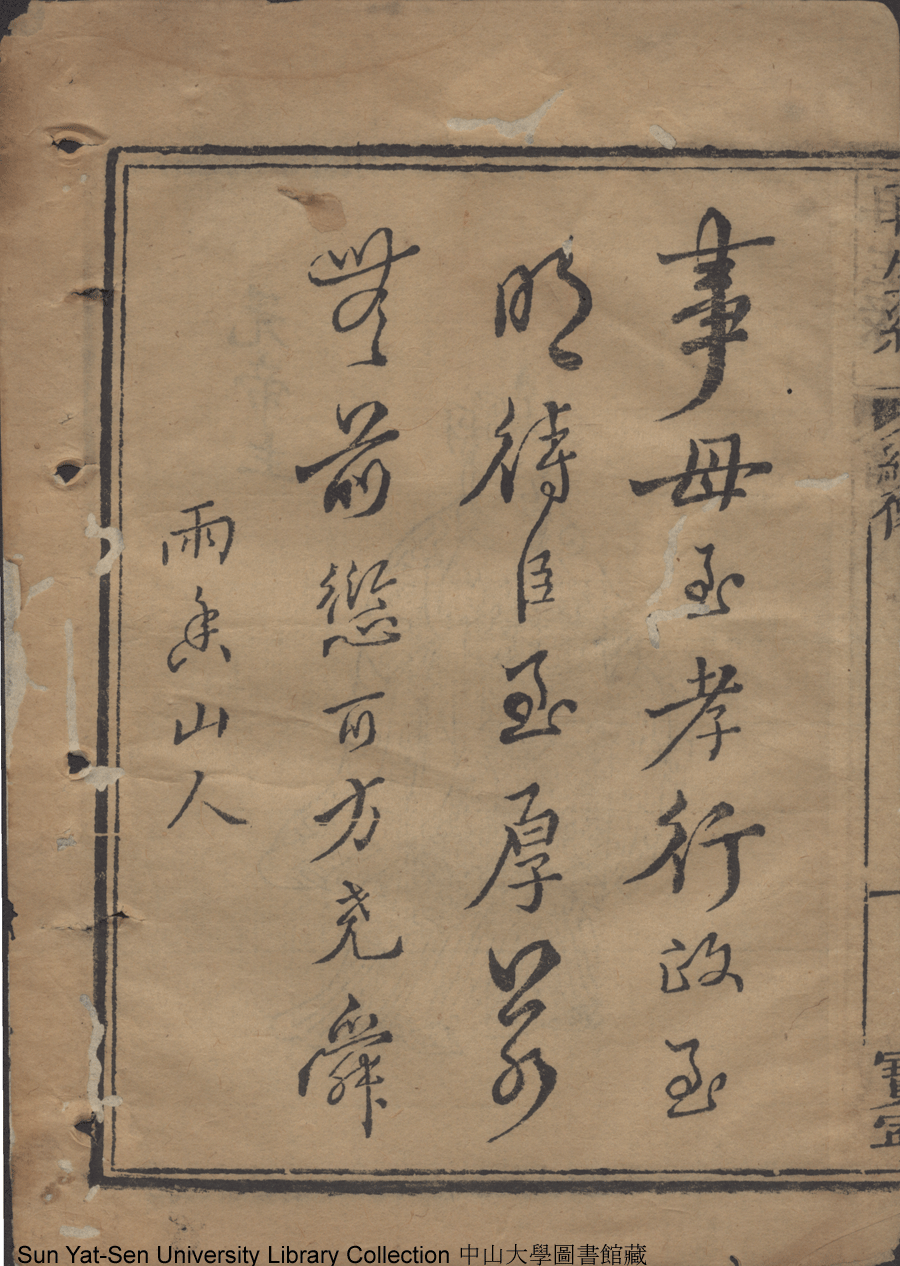 事母至孝行政至
明待臣至厚若
無前愆可方堯舜
雨香山人
再生緣
寶寧
Sun Yat-Sen University Library Collection 中山大學圖書館藏